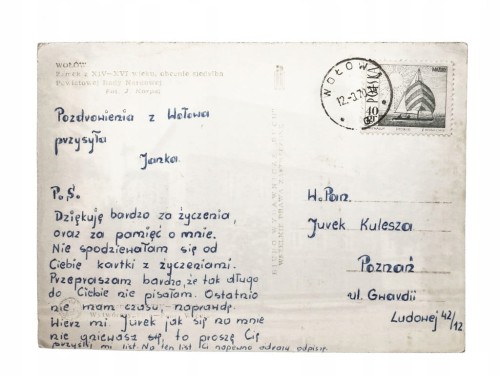 WOŁÓW
Zamek z XIV-XVI wieku, obecnie siedziba
Powiatowej Rady Narodowej
Fot. J.
WOŁÓW
12.-3.70
POLSKA
40 GR
Pozdrowienia z Wołowa
przysyła
Janka.
P.S.
Dziękuję bardzo za życzenia,
oraz za pamięć o mnie.
Nie spodziewałam się od
Ciebie kartki z życzeniami.
Przepraszam bardzo, że tak długo
do Ciebie nie pisałam. Ostatnio
nie mam czasu, naprawdę.
Wierz mi. Jurek jak się na mnie
nie gniewasz się, to proszę Cię
przyślij mi list. Na ten list Ci napewno odrazu odpiszę.
W.Pan.
Jurek Kulesza
Poznań
ul. Gwardii
Ludowej 42/12